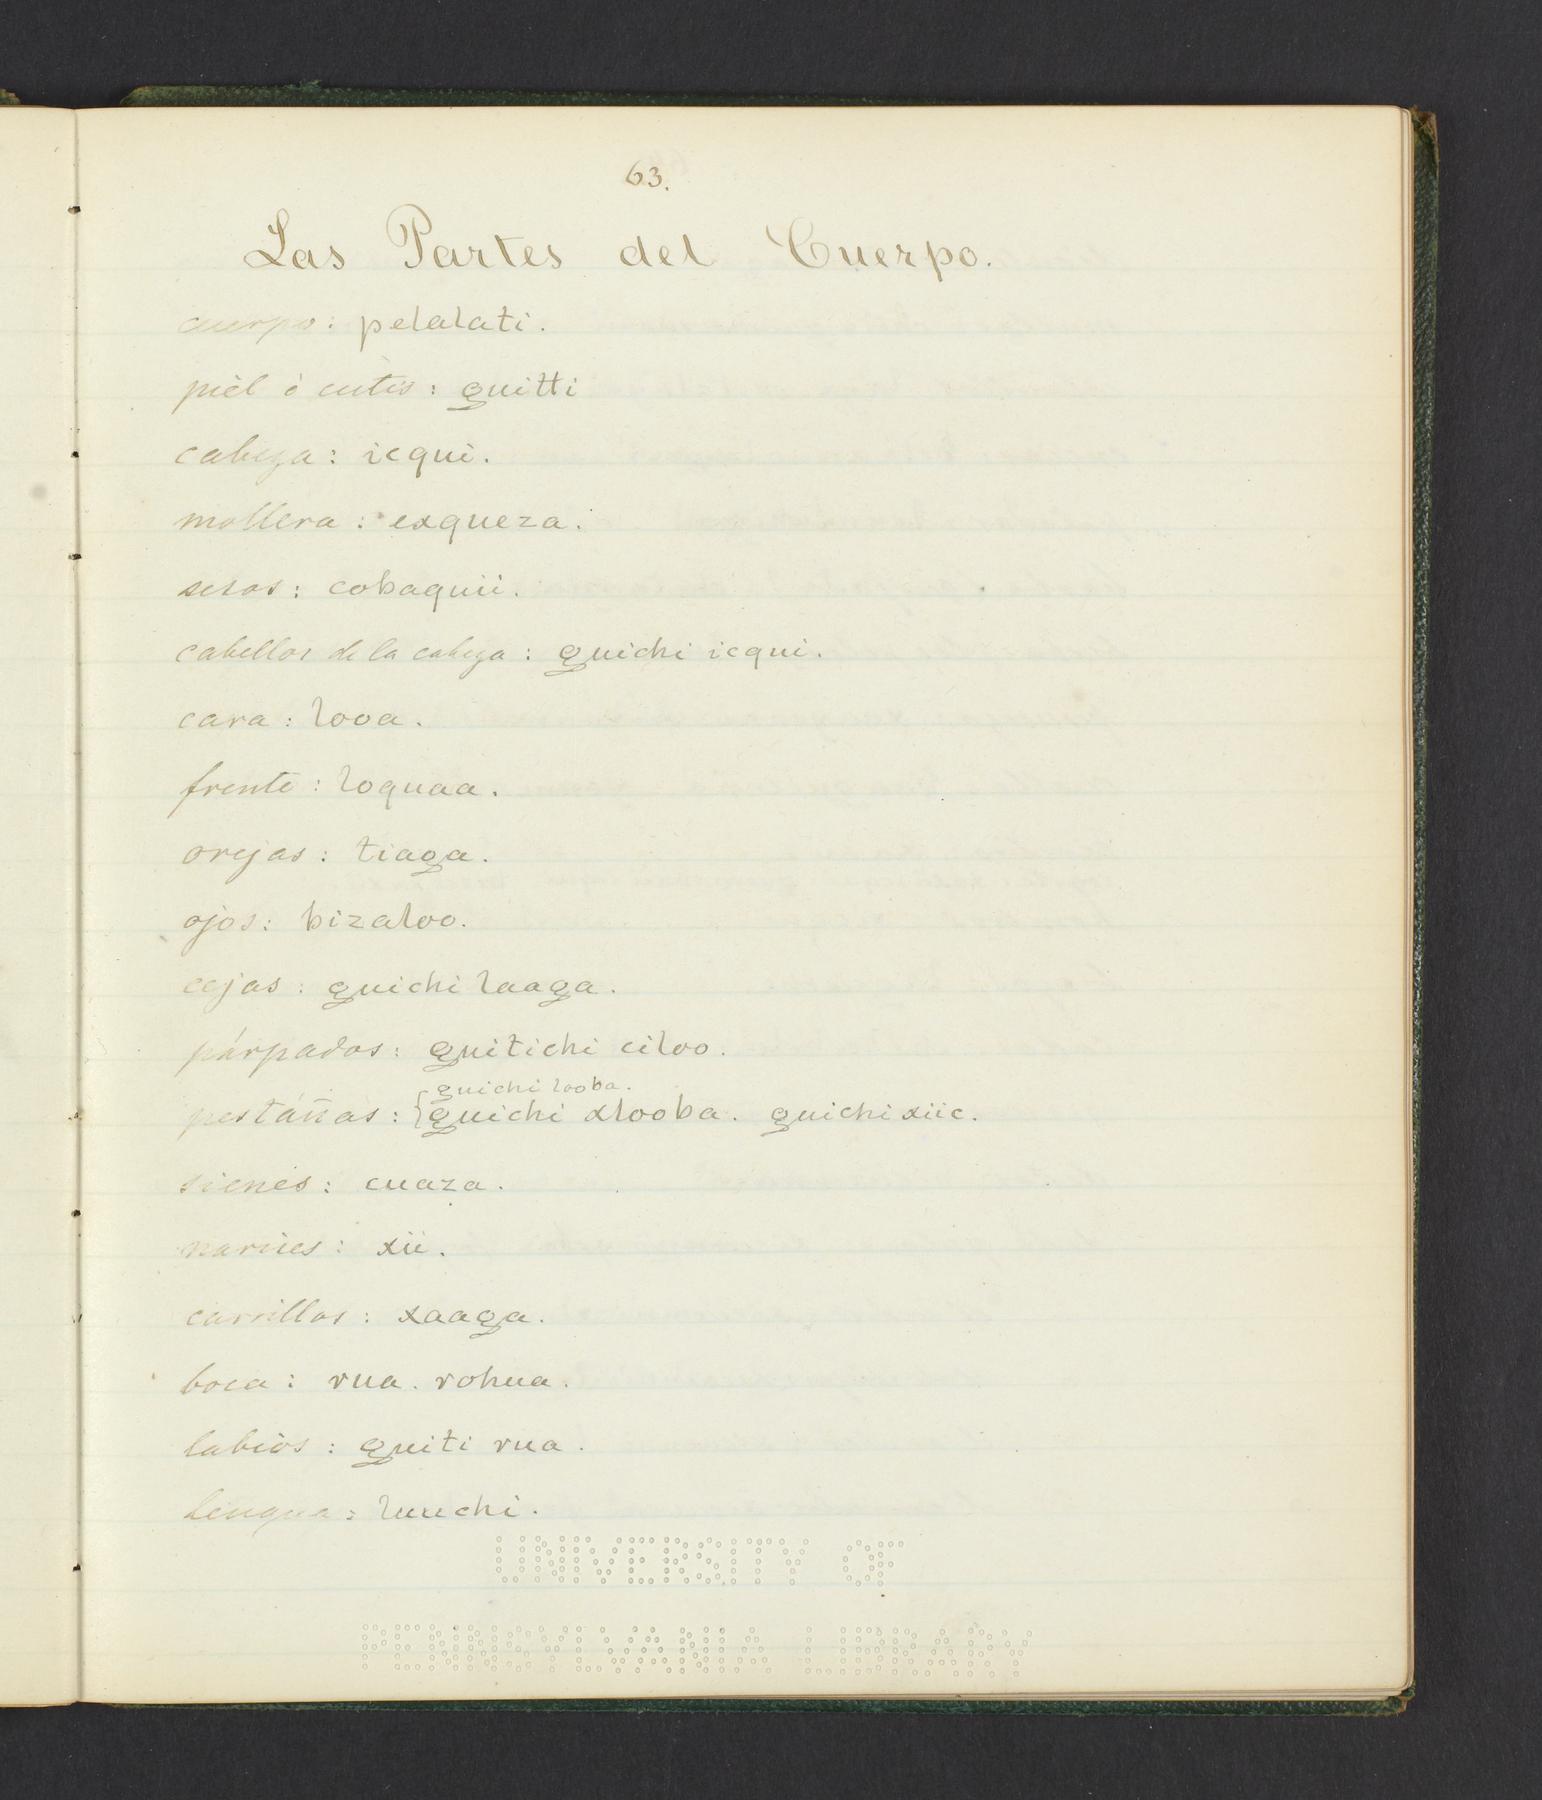 63.
Las Partes del Cuerpo.
cuerpo: pelalati.
pièl ò cutis: guitti
cabeza: icqui.
mollera: exqueza.
sesos: cobaquii.
cabellos de la cabeza: guichi icqui.
cara: looa.
frente: loquaa.
orejas: tiaga.
ojos: bizaloo.
cejas: guichi laaga.
párpados: guitichi ciloo.
guichi looba.
pestáñas: {guichi xlooba. guichi xiic.
sienes: cuaza.
narices: xii.
carrillos: xaaga.
boca: rua. rohua.
labiòs: guiti rua.
lengua: luuchi.
UNIVERSITY OF
PENNSYLVANIA LIBRARY